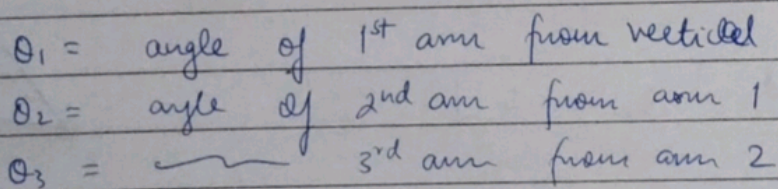 θ₁ = angle of 1st arm from vertical
θ₂ = angle of 2nd arm from arm 1
θ₃ = 3rd arm from arm 2